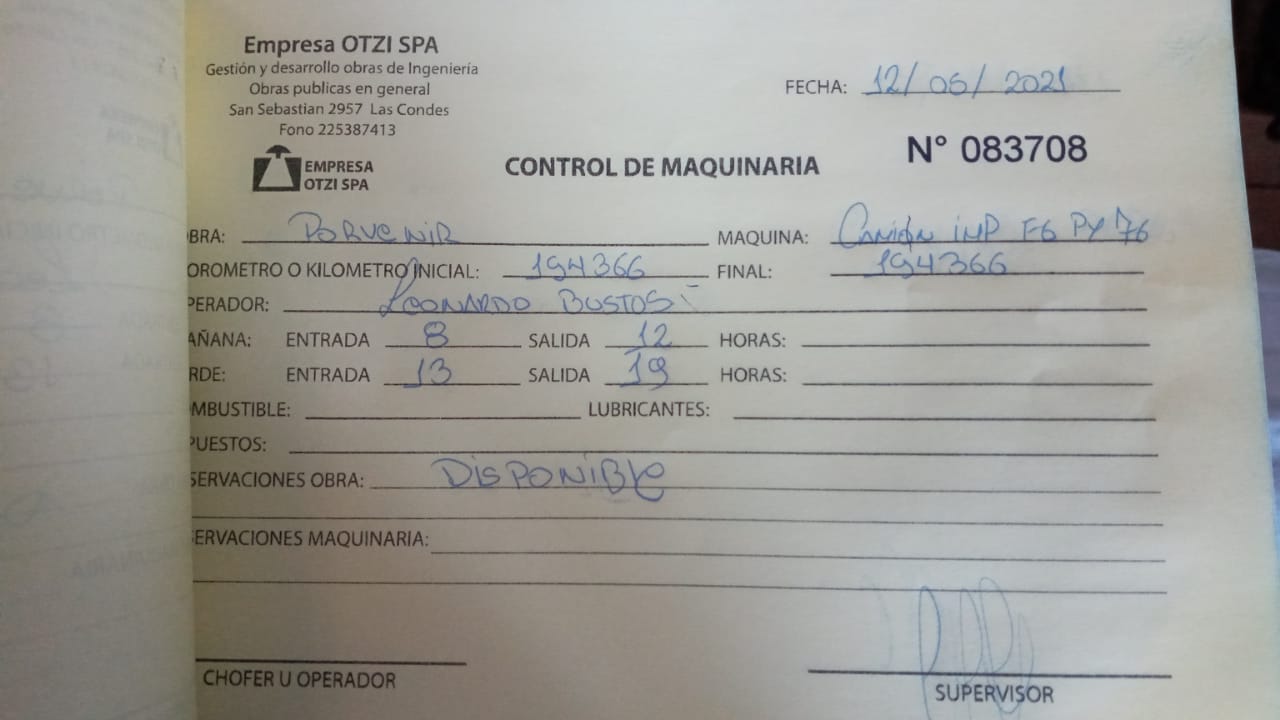 Empresa OTZI SPA
Gestión y desarrollo obras de Ingeniería
Obras publicas en general
San Sebastian 2957 Las Condes
Fono 225387413
FECHA: 12/06/2021
EMPRESA
OTZI SPA
CONTROL DE MAQUINARIA
N° 083708
BRA: PORVENIR MAQUINA: Camión imp FG PY 76
OROMETRO O KILOMETRO INICIAL: 194366 FINAL: 194366
PERADOR: LEONARDO BUSTOS
AÑANA: ENTRADA 8 SALIDA 12 HORAS:
RDE: ENTRADA 13 SALIDA 19 HORAS:
MBUSTIBLE: LUBRICANTES:
PUESTOS:
SERVACIONES OBRA: DISPONIBLE
SERVACIONES MAQUINARIA:
CHOFER U OPERADOR
SUPERVISOR